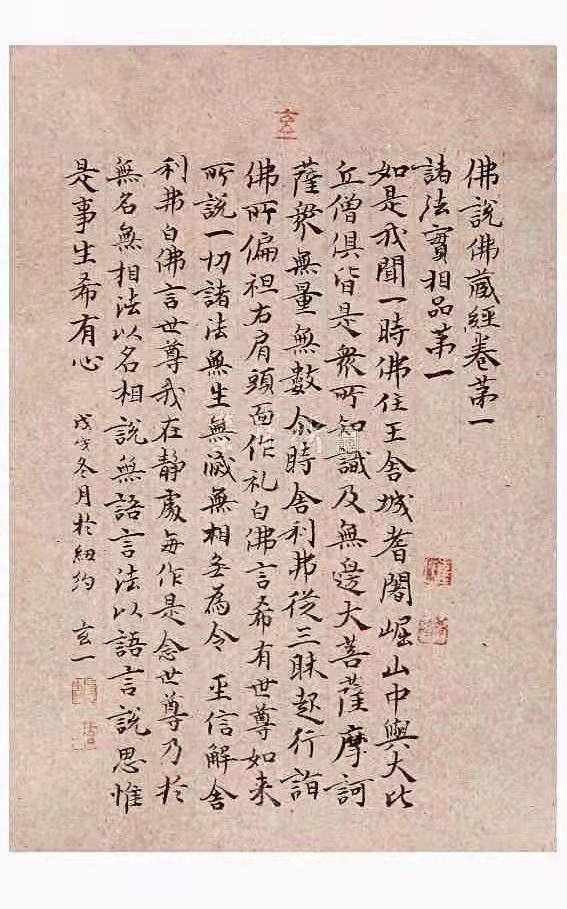 佛說佛藏經卷第一
諸法實相品第一
如是我聞一時佛住王舍城耆闍崛山中與大比
丘僧俱皆是眾所知識及無邊大菩薩摩訶
薩眾無量無數尒時舍利弗從三昧起行詣
佛所偏袒右肩頭面作礼白佛言希有世尊如来
所說一切諸法無生無滅無相無為令㞷信解舍
利弗白佛言世尊我在靜處每作是念世尊乃於
無名無相法以名相說無語言法以語言說思惟
是事生希有心
戊戌冬月於紐約 玄一
玄一